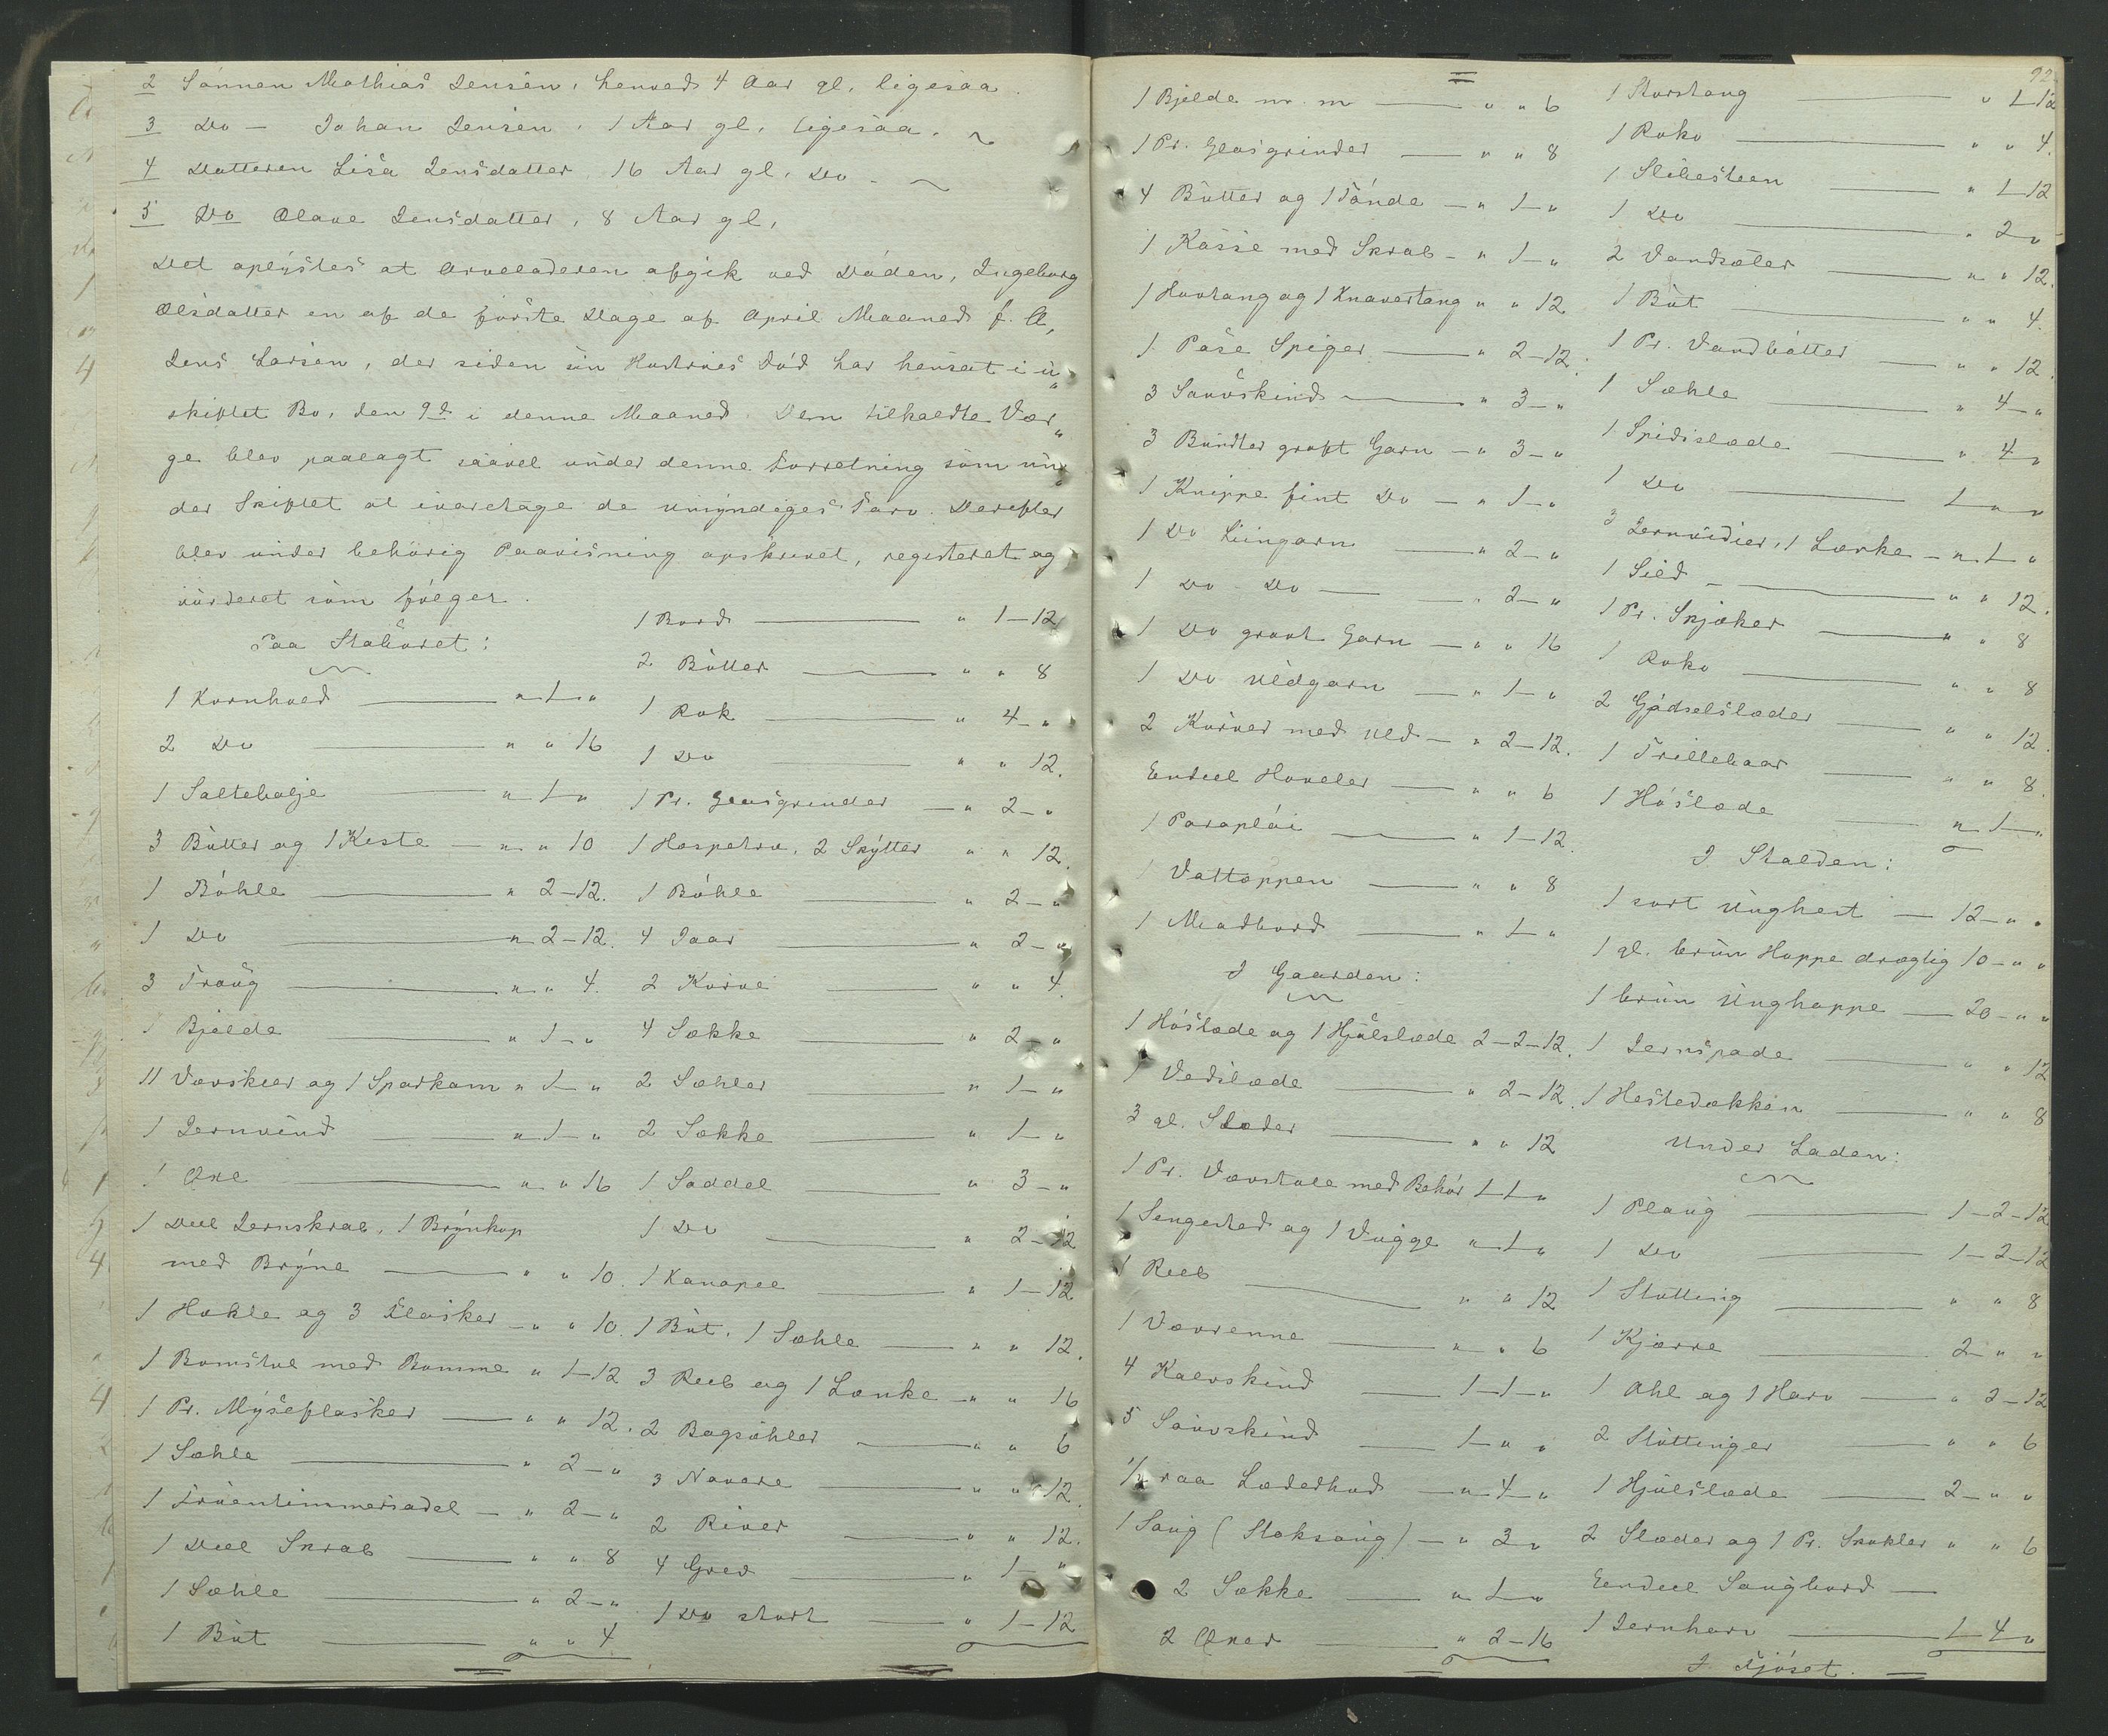 2 Sönnen Mathias Jensen, henved 4 Aar gl. ligesaa.
3 Do — Johan Jensen, 1 Aar gl. ligesaa.
4 Datteren Lisa Jensdatter 16 Aar gl. Do.
5 Do Olave Jensdatter, 8 Aar gl,
Det oplystes at Arveladeren afgik ved Döden, Ingeborg
Olsdatter en af de förste Dage af April Maaned f. A,
Jens Larsen, der siden sin Hustrues Död har hensat i u„
skiftet Bo, den 9d i denne Maaned. Den tilkaldte Vær„
ge blev paalagt saavel under denne Forretning som un„
der Skiftet at ivaretage de umyndiges Tarv. Derefter
blev under behörig Paavisning opskrevet, registeret og
vurderet som fölger.
Paa Staburet:
1 Kornhold — „ 1 „
2 Do — „ „ 16
1 Saltebalje — „ 1 „
3 Bütter og 1 Kiste — „ „ 10
1 Böhle — „ 2–12.
1 Do — „ 2–12.
3 Traüg — „ „ 4.
1 Bjelde — „ 1 – „
11 Vævskeer og 1 Sparkam „ 1 – „
1 Jernvind — „ 1 – „
1 Öxe — „ „ 16
1 Deel Jernskrab, 1 Brÿnkop
med Brÿne — „ „ 10.
1 Hekle og 3 Flasker — „ „ 10.
1 Bomstol med Bomme „ 1–12
1 Pr. Mÿseflasker — „ „ 12.
1 Sæhle — „ 2 – „
1 Früentimmersadel — „ 2 – „
1 Deel Skrab — „ „ 8
1 Sæhle — „ 2 – „
1 Büt — „ „ 4
1 Bord — „ 1–12
2 Bütter — „ „ 8
1 Rok — „ 4 – „
1 Do — „ „ 12.
1 Pr. Glasgrinder — „ 2 – „
1 Haspetræ, 2 Skÿtter „ „ 12.
1 Böhle — „ 2 – „
4 Jaar — „ 2 – „
2 Kurve — „ „ 4.
4 Sække — „ 2 – „
2 Sæhler — „ 1 – „
2 Sække — „ 1 – „
1 Saddel — „ 3 – „
1 Do — „ 2–12
1 Kanapee — „ 1–12
1 Büt, 1 Sæhle — „ „ 12.
3 Reeb og 1 Lænke — „ „ 16
2 Bagsæhler — „ „ 6
3 Navare — „ „ 12.
2 River — „ „ 12.
4 Grev — „ 1 – „
1 Do stort — „ 1–12
1 Bjelde m. m — „ „ 6
1 Pr. Glasgrinder — „ „ 8
4 Bütter og 1 Tönde — „ 1 – „
1 Kasse med Skrab – „ 1 – „
1 Hovtang og 1 Knavertang „ „ 12
1 Pose Spiger — „ 2–12.
3 Saüeskind — „ 3 – „
3 Bündter groft Garn – „ 3 – „
1 Knippe fint Do — „ 1 – „
1 Do Liingarn — „ 2 – „
1 Do Do — „ 2 – „
1 Do grovt Garn — „ „ 16
1 Do Uldgarn — „ 1 – „
2 Kurver med Uld — „ 2–12.
Eendeel Hoveler — „ „ 6
1 Paraplüi — „ 1–12.
1 Vattoppen — „ „ 8
1 Madbord — „ 1 – „
I Gaarden:
1 Höslæde og 1 Hjülslæde 2–2–12.
1 Vedslæde — „ 2–12.
3 gl. Slæder — „ „ 12
1 Pr. Vævstole med Behör 1–1 „
1 Sengested og 1 Vügge „ 1 „
1 Reeb — „ „ 12
1 Vævrenne — „ „ 6
4 Kalvskind — 1–1 – „
5 Saüvskind — 1 – „ „
1/2 raa Læderhud — „ 4 – „
1 Saüg (Stoksaüg) — „ 3 „
2 Sække — „ 1 „
2 Öxer — „ 2–16
92.
1 Storstang — „ 1–12
1 Roko — „ „ 4.
1 Slibesteen — „ 1–12
1 Do — „ 2 „
2 Vandsæler — „ „ 12.
1 Büt — „ „ 4.
1 Pr. Vandbötter — „ „ 12.
1 Sæhle — „ 4 – „
1 Spidsslæde — „ 4 „
1 Do — 1 „ „
3 Jernvidier, 1 Lænke — „ 1 „
1 Sild — „ „ 12.
1 Pr. Skjæker — „ „ 8
1 Roko — „ „ 8
2 Gjödselslæder — „ „ 12.
1 Trillebaar — „ „ 8.
1 Höslæde — „ 1 – „
I Stalden:
1 sort Unghest — 12 – „ „
1 gl. brün Hoppe drægtig 10 – „ „
1 brün Unghoppe — 20 – „ „
1 Jernspade — „ „ 12
1 Hestedækken — „ „ 8
Under Laden:
1 Plaüg — 1–2–12
1 Do — 1–2–12
1 Stutting — „ „ 8
1 Kjærre — 2 – „ „
1 Ahl og 1 Harv — „ 2–12
2 Stüttinger — „ „ 6
1 Hjülslæde — 2 – „ „
2 Slæder og 1 Pr. Skokler „ „ 6
Eendeel Saugbord —
1 Jernharv — 1–4 „
I Fjöset.